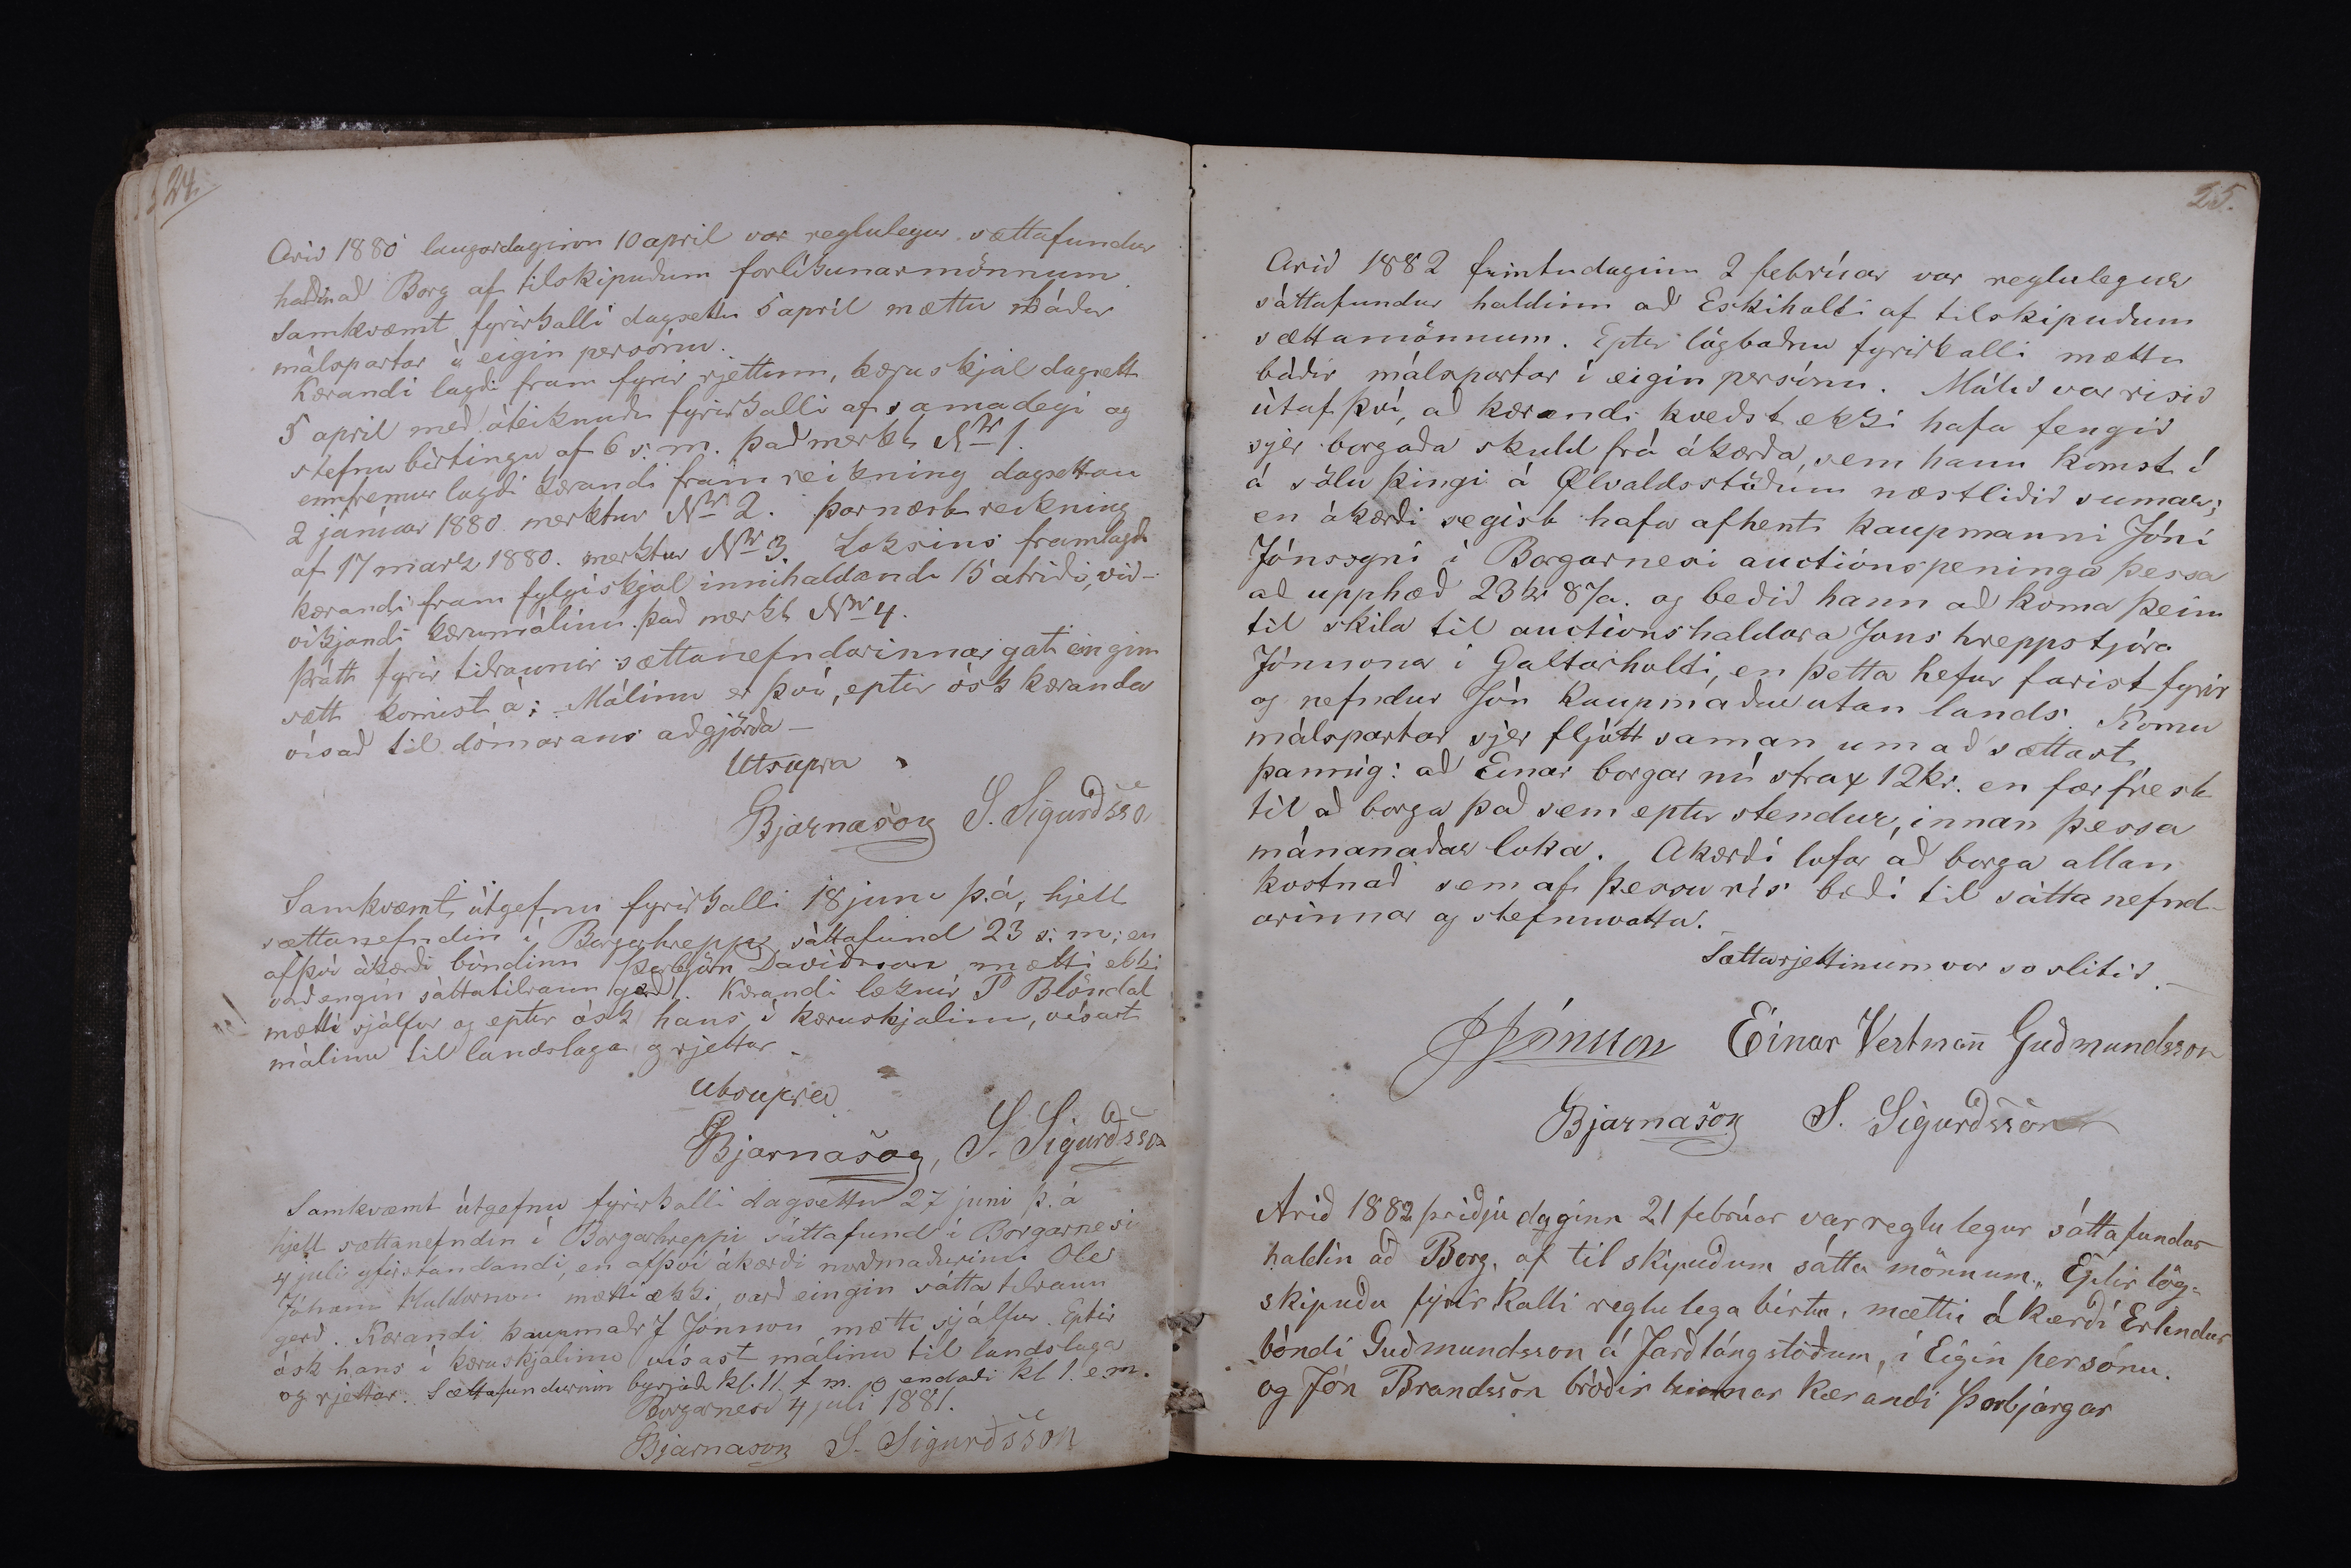 24.
Arið 1880 laugardaginn 10 april var reglulegur sættafundur
haldinað Borg af tilskipuðum forlíkunarmönnum.
Samkvæmt fyrirkalli dagsettu 5 apríl mættu báðir
málspartar í eigin persónu.
Kærandi lagði fram fyrir rjettinn, kæruskjal dagsett
5 april með áteiknuðu fyrirkalli af sama degi og
stefnu birtingu af 6 s. m. það merkt Nr 1.
ennfremur lagði kærandi fram reikning dagsettan
2 janúar 1880 merktur Nr 2. þarnæst reikning
af 17 marz 1880. merktur Nr 3. Loksins framlagði
kærandi fram fylgiskjal innihaldandi 15 atriði, við-
víkjandi kærumálinu það merkt Nr 4.
þrátt fyrir tilraunir sættanefndarinnar gat eingin
sætt komist á; Málinu er því, eptir ósk kæranda
vísað til dómarans aðgjörða –
Utsupra
Bjarnason S. Sigurðsso
Samkvæmt útgefnu fyrirkalli 18 juni þ.á, hjelt
sættanefndin í Borgarhrepp sáttafund 23 s: m; en
afþví ákærði bóndinn Þorbjörn Davíðsson mætti ekki
varð engin sáttatilraun gerð. Kærandi læknir P Blöndal
mætti sjálfur og eptir ósk hans í kæruskjalinu, vísast
málinu til landslaga og rjettar.
Utsupra
Bjarnason, S. Sigurðsson
Samkvæmt útgefnu fyrirkalli dagsettu 27 juni þ. á
hjelt sættanefndin í Borgarhreppi sáttafund í Borgarnesi
4 juli yfirstandandi, en afþví ákærði norðmaðurinn Ole
Johan mætti ekki, varð eingin sátta tilraun
gerð. Kærandi kaupmaðr J Jónsson mætti sjálfur. Eptir
ósk hans í kæruskjalinu vísast málinu til landslaga
og rjettar. Sættafundurinn byrjaði kl. 11. f m. og endaði kl 1. e.m.
Borgarnesi 4 juli 1881.
Bjarnason S. Sigurðsson
25.
Arið 1882 fimtudaginn 2 febrúar var reglulegur
sáttafundur haldinn að Eskiholti af tilskipuðum
sættamönnum. Eptir lögboðnu fyrirkalli mættu
báðir málspartar í eigin persónu. Málið var risið
útaf því, að kærandi kveðst ekki hafa fengið
sjer borgaða skuld frá ákærða, sem hann komst í
á söluþingi á Ølvaldsstöðum næstliðið sumar;
en ákærði segist hafa afhent kaupmanni Jóni
Jónssyni í Borgarnesi auctiónspeninga þessa
að upphæð 23 kr 87a. og beðið hann að koma þeim
til skila til auctionshaldara Jons hreppstjóra
Jónssonar í Galtarholti, en þetta hefur farist fyrir
og nefndur Jón kaupmaður utan lands. Komu
málspartar sjer fljótt saman um að sættast
þannig: að Einar borgar nú strax 12 kr. en fær frest
til að borga það sem eptir stendur, innan þessa
mánanaðar loka. Akærði lofar að borga allan
kostnað sem af þessu rís bæði til sátta nefnd-
arinnar og stefnuvotta.
Sættarjettinum var so slitið.
JJónsson Einar Vestmañ Guðmundsson
Bjarnason S. Sigurðsson
Arið 1882 þriðjúdaginn 21 febrúar var reglulegur sáttafundur
haldin að Borg, af til skipuðum sátta mönnum„ Eptir lög-
skipuðu fyrirkalli reglulega birtu, mætti ákærði Erlendur
bóndi Guðmundsson á Jarðlángstöðum, í Eigin persónu.
og Jón Brandsson bróðir hinnar kærandi Þorbjargar